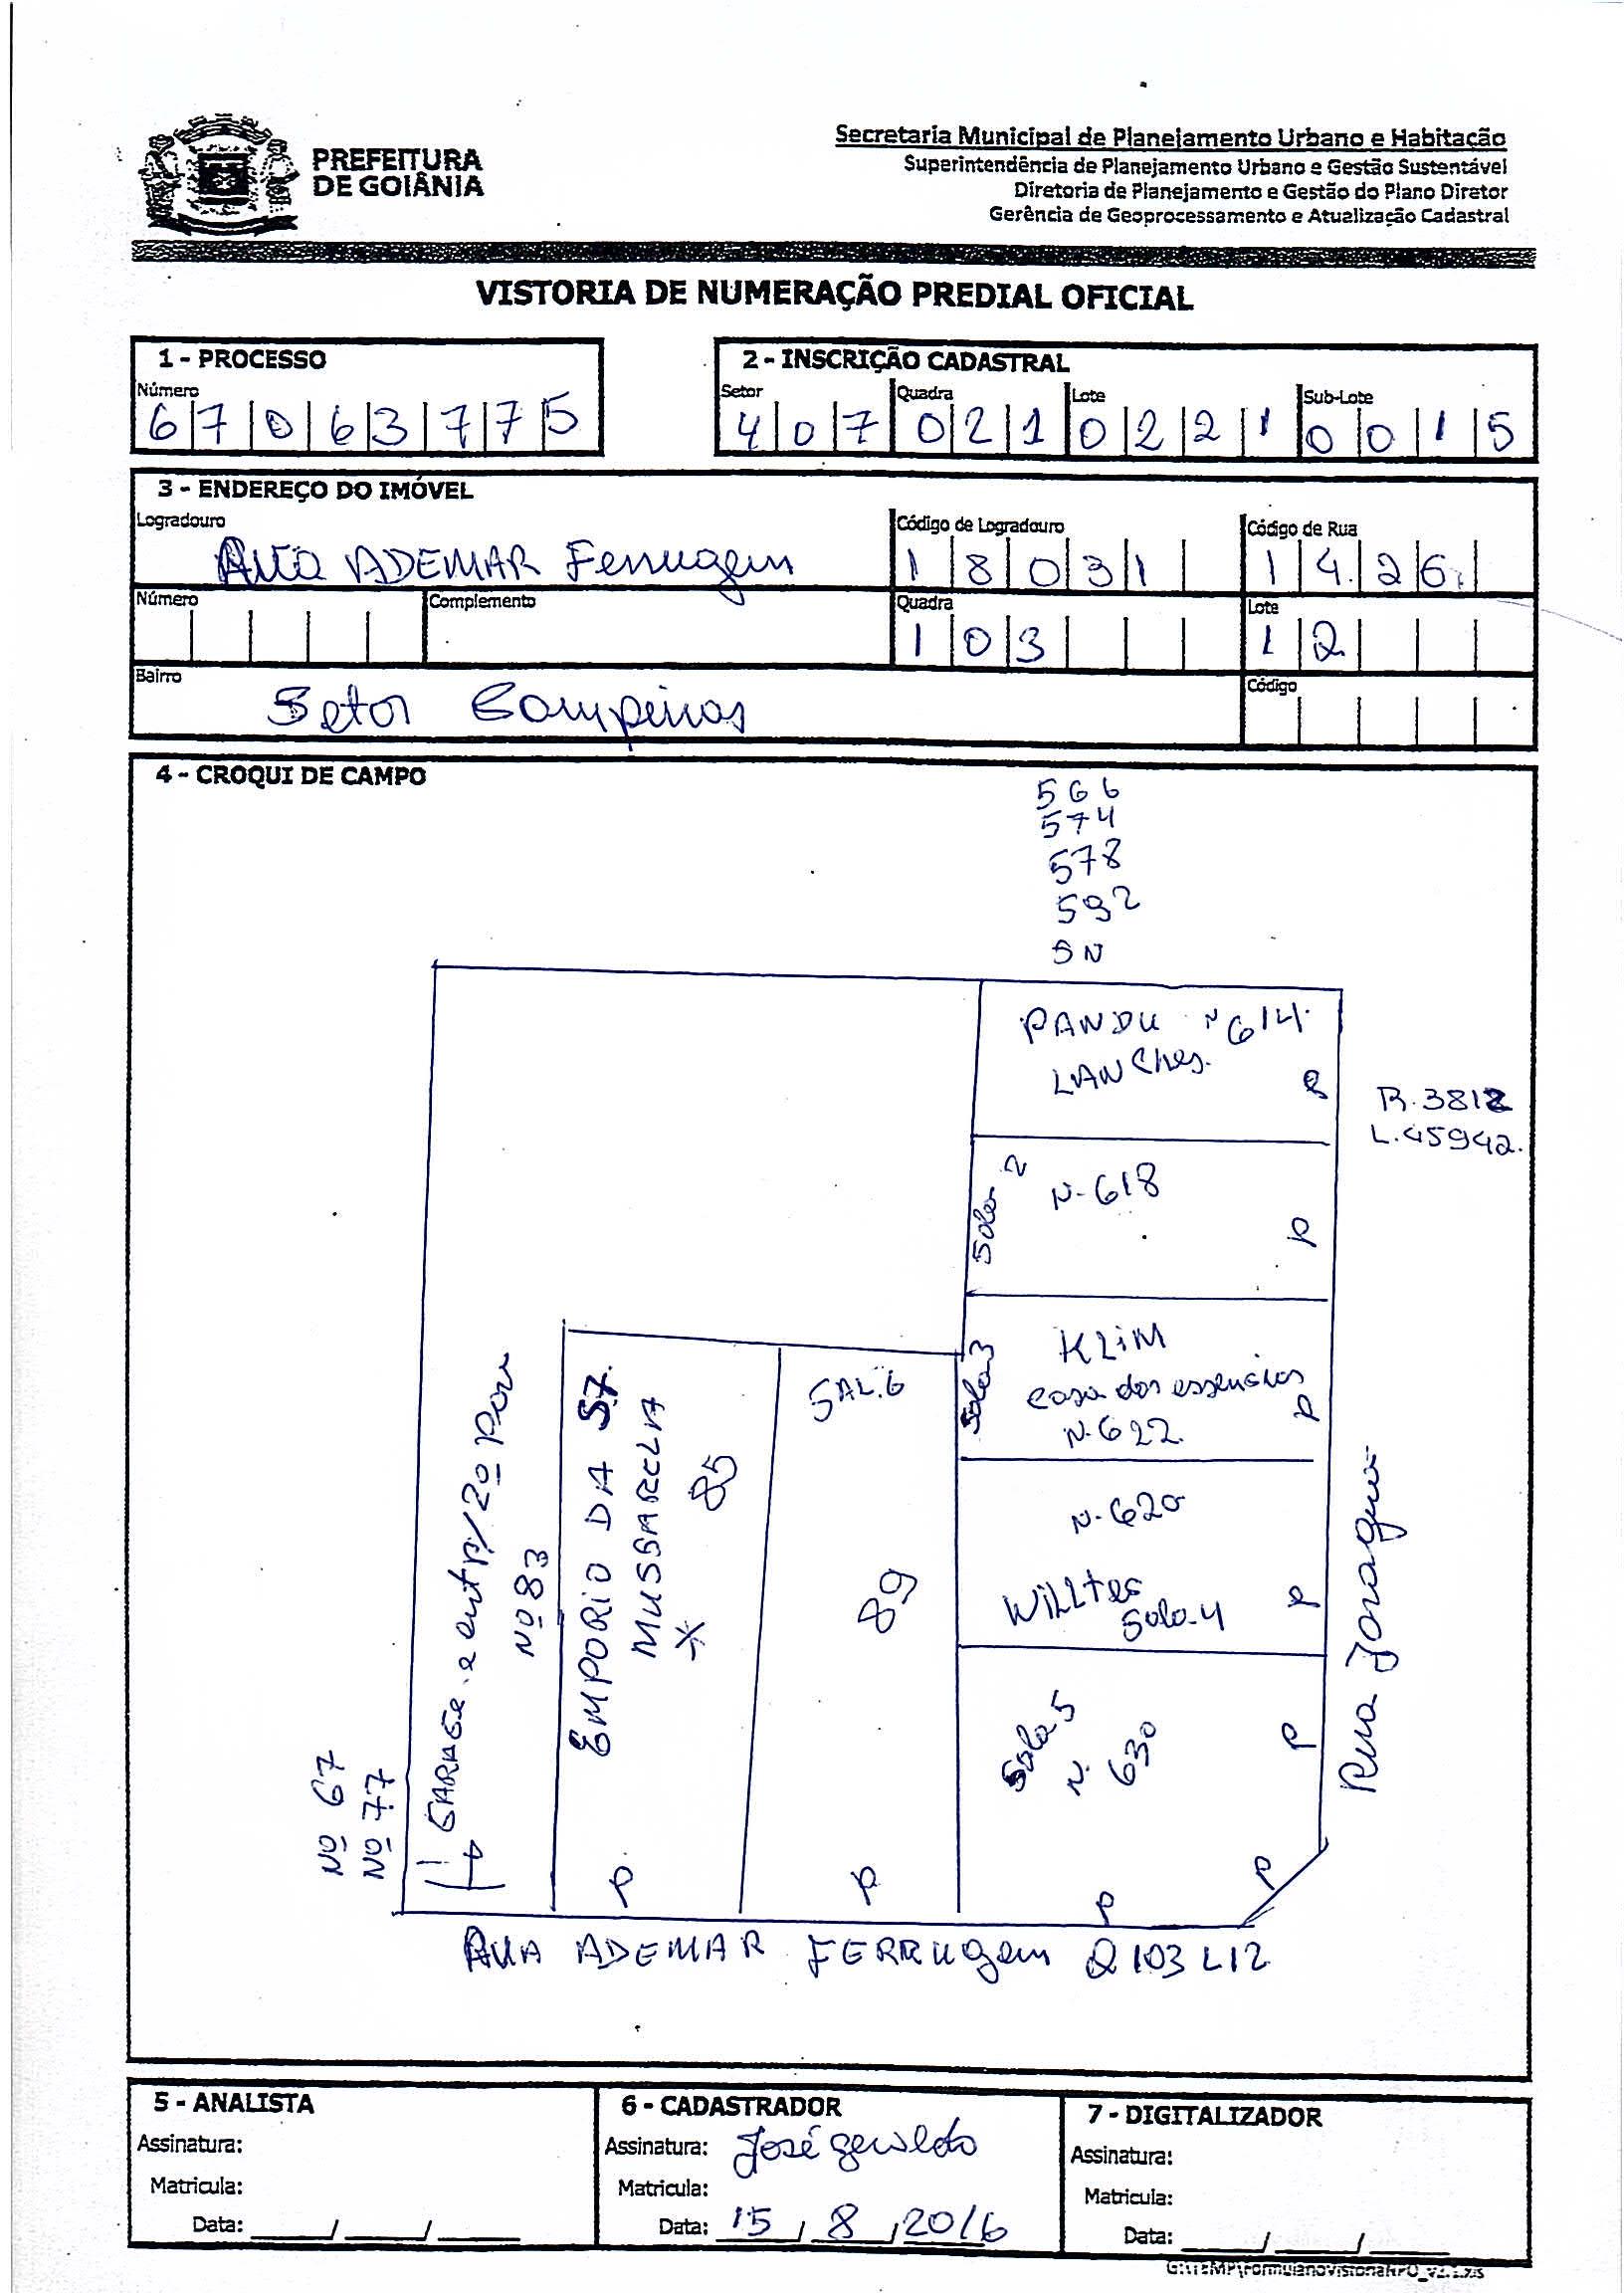 PREFEITURA
DE GOIÂNIA
Secretaria Municipal de Planejamento Urbano e Habitação
Superintendência de Planejamento Urbano e Gestão Sustentável
Diretoria de Planejamento e Gestão do Plano Diretor
Gerência de Geoprocessamento e Atualização Cadastral
VISTORIA DE NUMERAÇÃO PREDIAL OFICIAL
1 - PROCESSO
Número
67063775
2 - INSCRIÇÃO CADASTRAL
Setor Quadra Lote Sub-Lote
407 021 0221 0015
3 - ENDEREÇO DO IMÓVEL
Logradouro Código de Logradouro Código de Rua
Rua ADEMAR Ferrugem 18031 1426
Número Complemento Quadra Lote
103 12
Bairro Código
Setor Campinas
4 - CROQUI DE CAMPO
566
574
578
592
SN
PANDU N 614
LANChes.
P
R.3812
L.45942.
Sala 2
N-618
P
Sala 3
KLIM
casa das essencias
N-622
P
N-620
WILLtec
Sala-4
P
Sala 5
N. 630
P
P
P
Rua Jaraguá
SAL.6
89
P
EMPORIO DA S7.
MUSSARELA
* 85
P
GARAGE. e entr/2º Pav
Nº 83
Nº 67
Nº 77
RUA ADEMAR FERRUgem Q103 L12
5 - ANALISTA
Assinatura:
Matricula:
Data: ____/____/____
6 - CADASTRADOR
Assinatura: José Geraldo
Matricula:
Data: 15/8/2016
7 - DIGITALIZADOR
Assinatura:
Matricula:
Data: ____/____/____